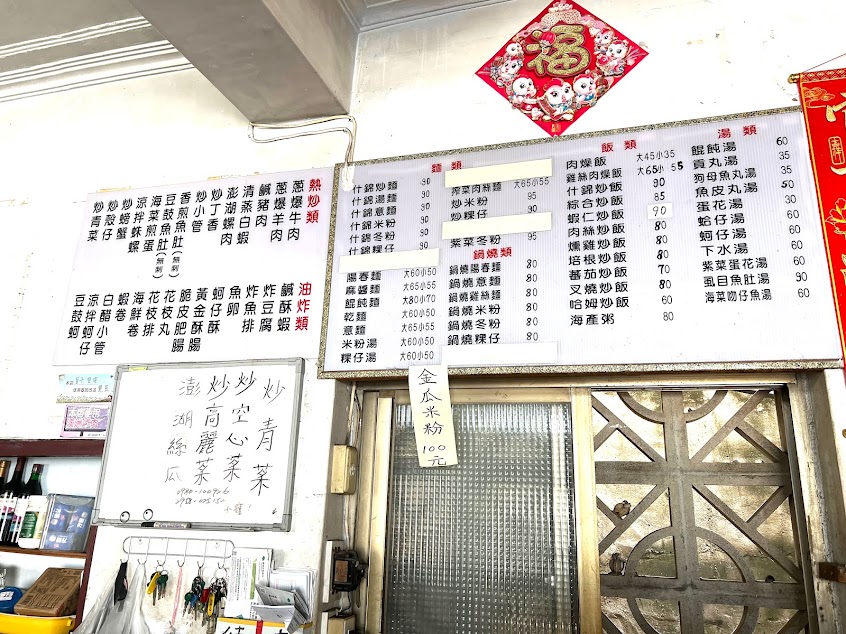 福
熱炒類
蔥爆牛肉
蔥爆羊肉
鹹豬肉
清蒸白蝦
澎湖螺肉
炒丁香
炒小管
香煎魚肚(無刺)
豆鼓魚肚(無刺)
海菜煎蛋
涼拌蛛螺
炒螃蟹
炒殼仔
炒青菜
油炸類
鹹酥蝦
炸豆腐
炸魚排
魚卵
蚵仔酥
黃金酥
脆皮肥腸
花枝丸
花枝排
海鮮卷
蝦卷
白醋小管
涼拌蚵
豆鼓蚵
麵類
什錦炒麵 90
什錦湯麵 80
什錦意麵 80
什錦米粉 80
什錦冬粉 90
什錦粿仔 80
陽春麵 大60小50
麻醬麵 大65小55
餛飩麵 大80小70
乾麵 大60小50
意麵 大65小55
米粉湯 大60小50
粿仔湯 大60小50
榨菜肉絲麵 大65小55
炒米粉 90
炒粿仔
紫菜冬粉 95
鍋燒類
鍋燒湯春麵 80
鍋燒意麵 80
鍋燒雞絲麵 80
鍋燒米粉 80
鍋燒冬粉 80
鍋燒粿仔 80
飯類
肉燥飯 大45小35
雞絲肉燥飯 大65小55
什錦炒飯 90
綜合炒飯 85
蝦仁炒飯 90
肉絲炒飯 80
燻雞炒飯 80
培根炒飯 80
蕃茄炒飯 70
叉燒炒飯 80
哈姆炒飯 60
海產粥 80
湯類
餛飩湯 60
貢丸湯 35
狗母魚丸湯 35
魚皮丸湯 50
蛋花湯 35
蛤仔湯 60
蚵仔湯 60
下水湯 60
紫菜蛋花湯 35
虱目魚肚湯 60
海菜吻仔魚湯 60
金瓜米粉 100元
炒青菜
炒空心菜
炒高麗菜
澎湖絲瓜